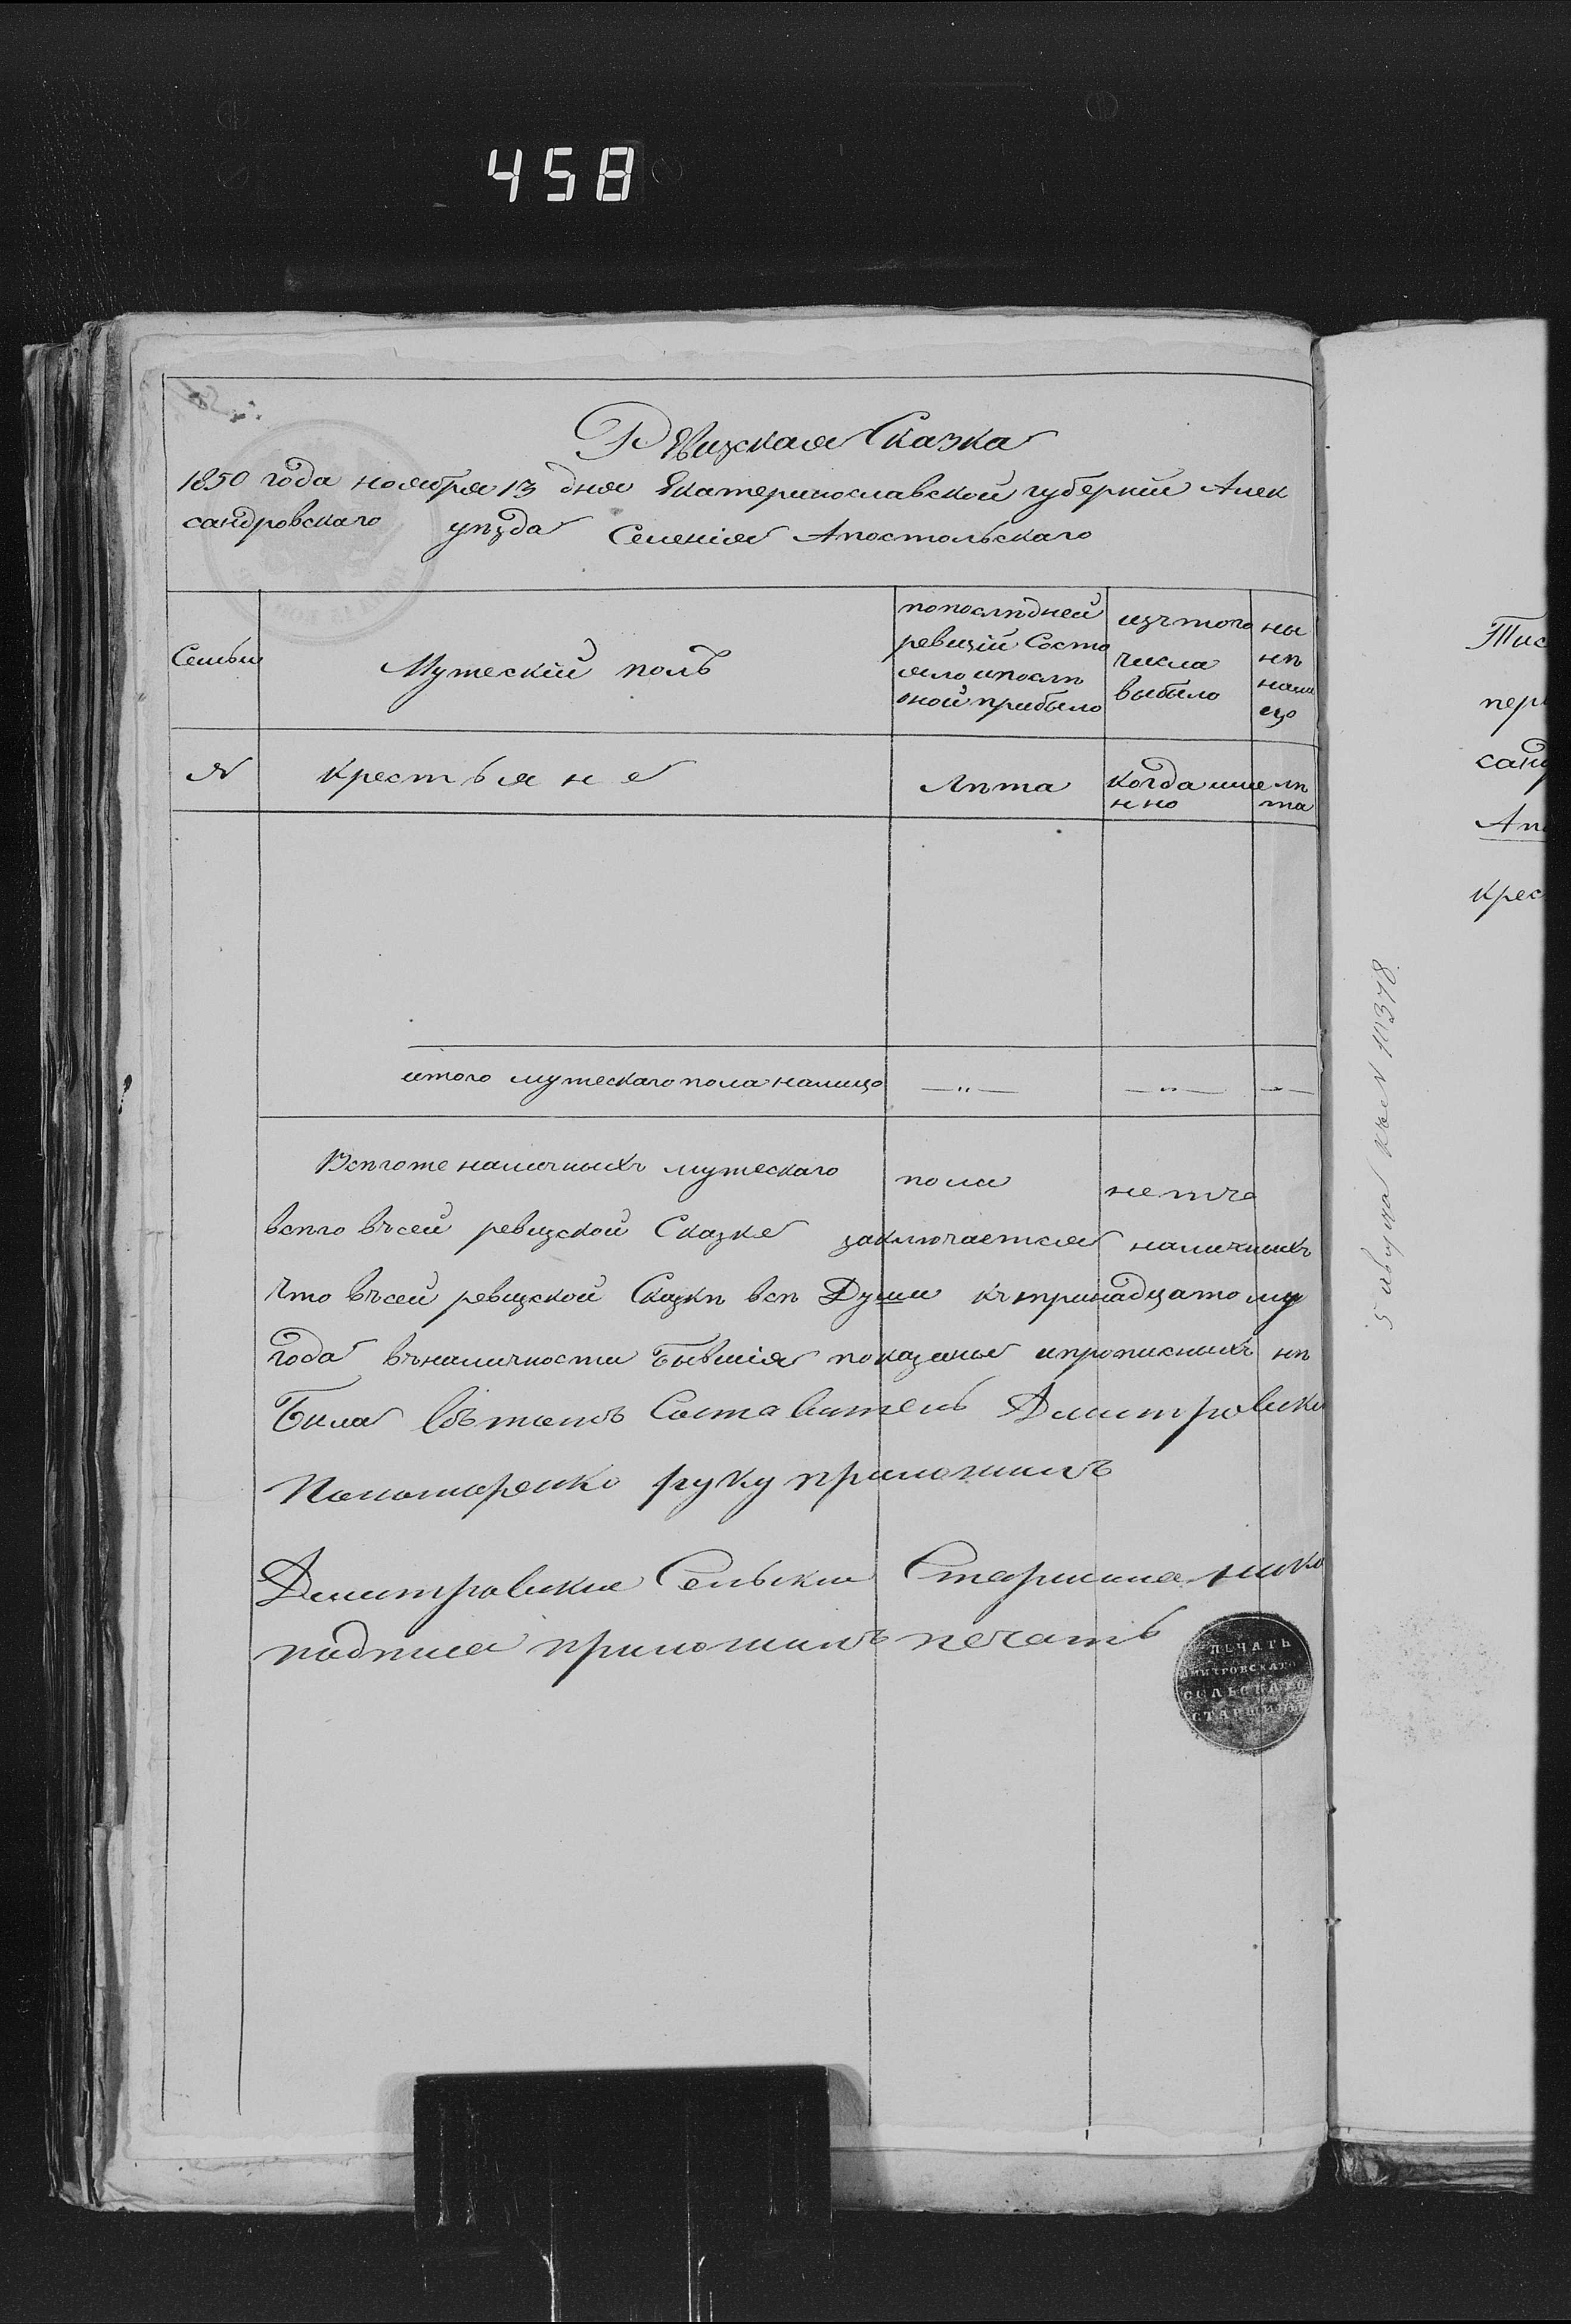 458
Ревизская Сказка
1850 года ноября 13 дня Екатеринославской губернии Алек
сандровского уѣзда Селения Апостольскаго
Семьи
Мужеский полъ
попослѣдней
ревизій Состо
яло ипослѣ
оной прибыло
изътого
числа
выбыло
ны
нѣ
нали
цо
№
крестьяне
Лѣта
когдаиме
нно
лѣ
та
итого мужескаго пола налицо — " — — " — — " —
Всѣгоже наличныхъ мужескаго пола нетъ
всѣго въсей ревизской Сказке заключается наличныхъ
Что въсей ревизской Сказкѣ всѣ Души къ тринадцатому
года въналичности бывшія показаны ипрописныхъ нѣ
Пономаренко руку приложилъ
Сельски Старшина
приложилъ печать
ПЕЧАТЬ
ДМИТРОВСКАГО
СЕЛЬСКАГО
СТАРШИНЫ
Тис
пер
санд
Апо
крес
N 10378.